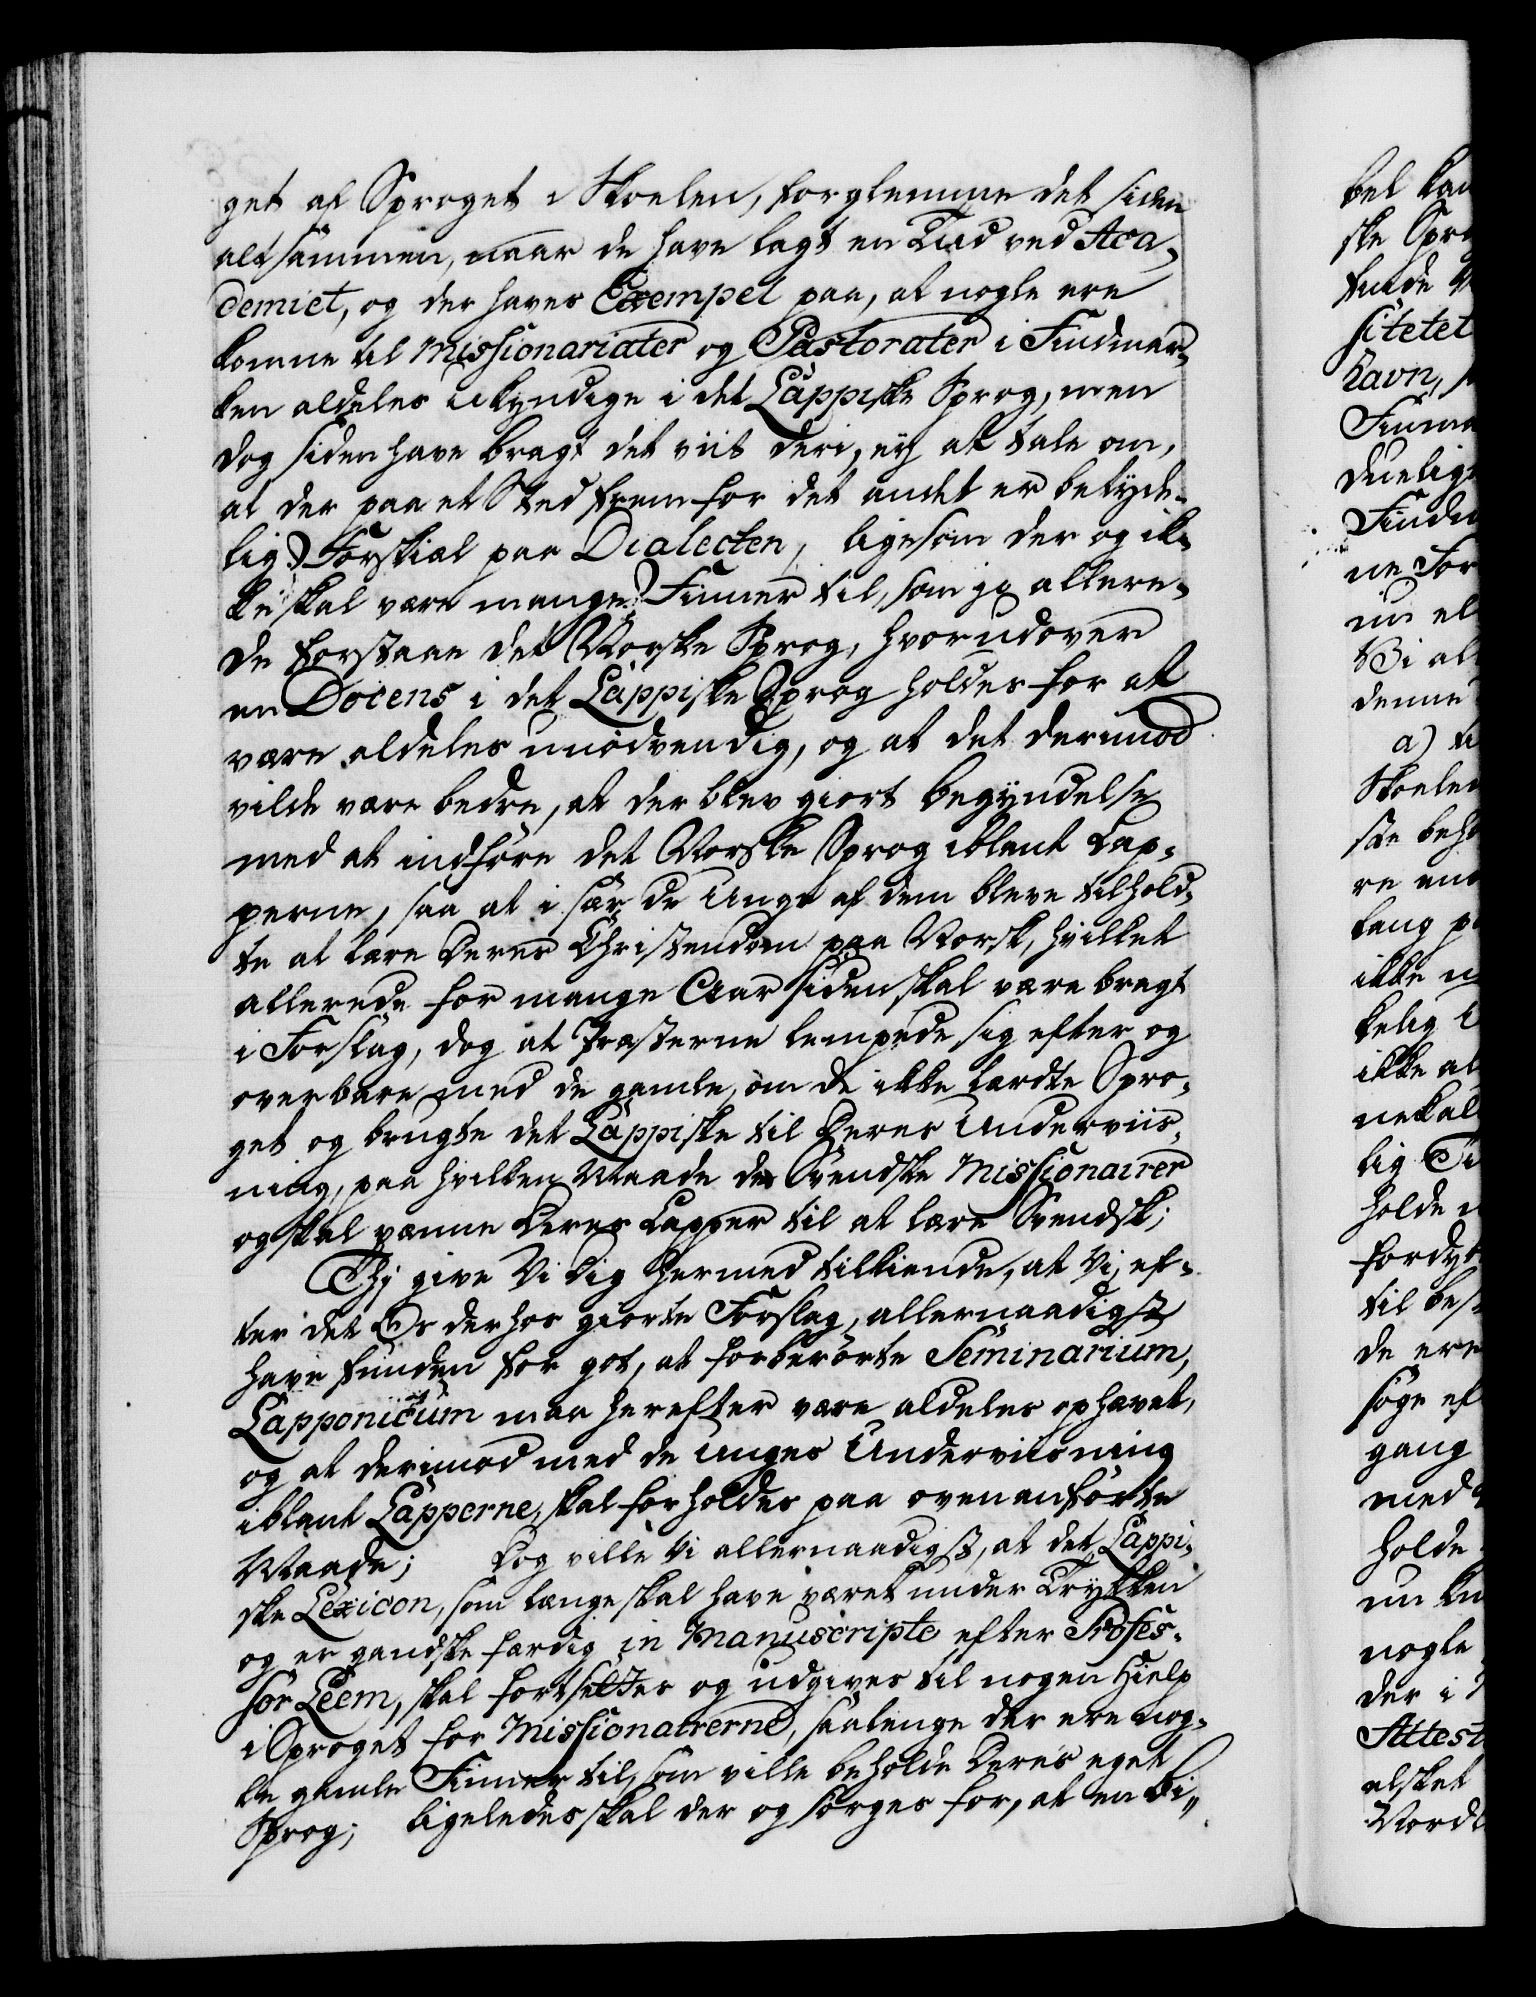 get af Sproget i Skoelen, forglemme det siden
altsammen, naar de have lagt en Tiid ved Aca-
demiet, og der haves Exempel paa, at nogle ere
komne til Missionariater og Pastorater i Findmar-
ken aldeles ukyndige i det Lappiske Sprog, men
dog siden have bragt det viit deri, ey at tale om,
at der paa et Sted frem for det andet er betyde-
lig Forskiæl paa Dialecten, ligesom der og ik-
ke skal være mange Finner til, som jo allere-
de forstaae det Norske Sprog, hvorudover
en Docens i det Lappiske Sprog holdes for at
være aldeles unødvendig, og at det derimod
vilde være bedre, at der blev giort begyndelse
med at indføre det Norske Sprog iblant Lap-
perne, saa at i sær de Unge af dem bleve tilhold-
te at lære deres Christendom paa Norsk, hvilket
allerede for mange Aar siden skal være bragt
i Forslag, dog at Præsterne lempede sig efter og
overbare med de gamle, om de ikke lærdte Spro-
get og brugte det Lappiske til deres Underviis-
ning, paa hvilken Maade de Svendske Missionairer
og skal vænne deres Lapper til at lære Svendsk;
Thj give Vi dig hermed tilkiende, at Vi, ef-
ter det Os derhos giorte Forslag, allernaadigst
have funden for got, at forberørte Seminarium
Lapponicum maa herefter være aldeles ophævet,
og at derimod med de Unges Underviisning
iblant Lapperne, skal forholdes paa ovenanførte
Maade; Dog ville Vi allernaadigst, at det Lappi-
ske Lexicon, som længe skal have været under Trykken
og er gandske færdig in Manuscripto efter Profes-
sor Leem, skal fortsættes og udgives til nogen Hielp
i Sproget for Missionairerne, saalenge der ere nog-
le gamle Finner til, som ville beholde deres eget
Sprog; ligeledes skal der og sørges for, at en Bi-